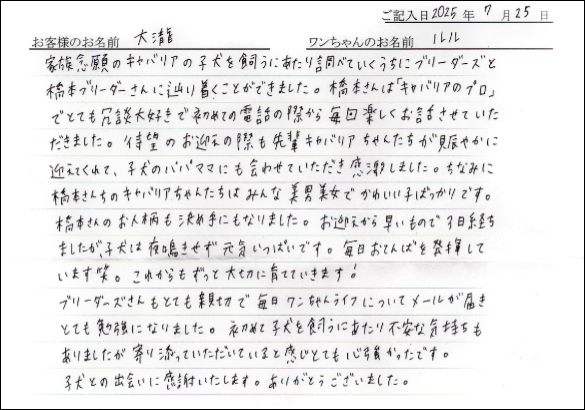 ご記入日2025年 7月25日
お客様のお名前 大瀧 ワンちゃんのお名前 ルル
家族念願のキャバリアの子犬を飼うにあたり調べていくうちにブリーダーズと
橋本ブリーダーさんに辿り着くことができました。橋本さんは「キャバリアのプロ」
でとても冗談大好きで初めての電話の際から毎回楽しくお話させていた
だきました。待望のお迎えの際も先輩キャバリアちゃんたちが賑やかに
迎えてくれて、子犬のパパママにも会わせていただき感激しました。ちなみに
橋本さんちのキャバリアちゃんたちはみんな美男美女でかわいい子ばっかりです。
橋本さんのお人柄も決め手にもなりました。お迎えから早いもので3日経ち
ましたが子犬は夜鳴きせず元気いっぱいです。毎日おてんばを発揮して
います笑。これからもずっと大切に育てていきます!
ブリーダーズさんもとても親切で毎日ワンちゃんライフについてメールが届き
とても勉強になりました。初めて子犬を飼うにあたり不安な気持ちも
ありましたが寄り添っていただいていると感じとても心強かったです。
子犬との出会いに感謝いたします。ありがとうございました。